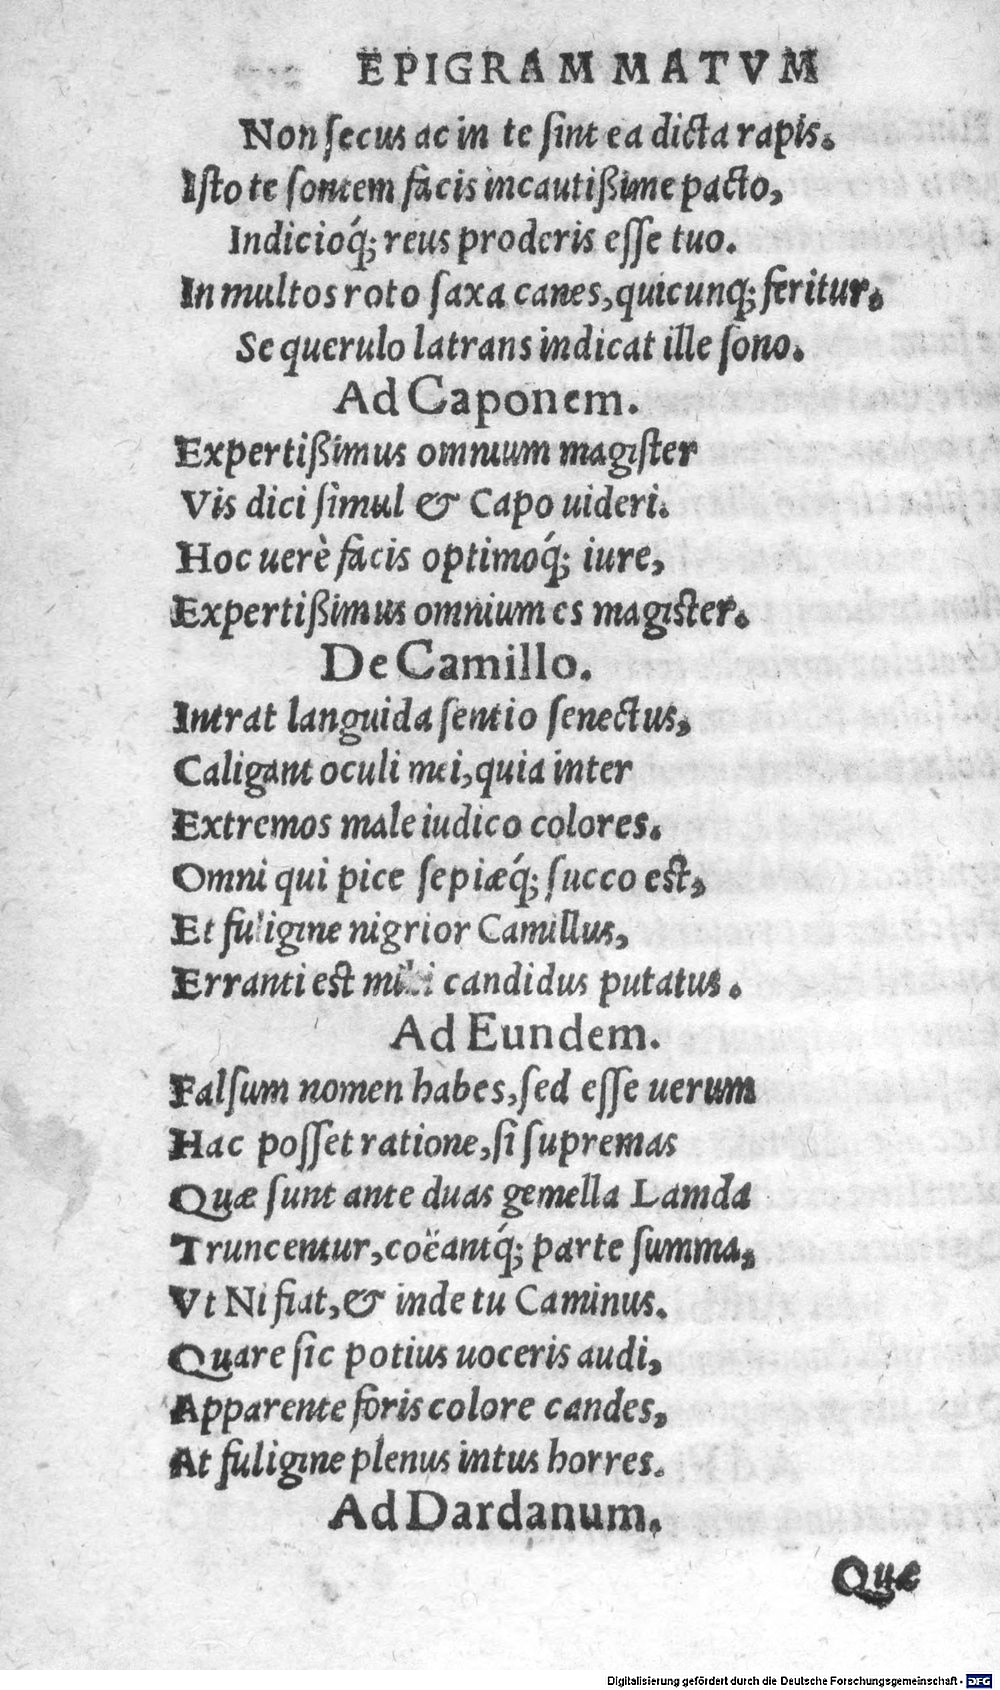 EPIGRAMMATVM
Non ſecus ac in te ſint ea dicta rapis.
Iſto te ſontem facis incautißime pacto,
Indicioq́; reus proderis eſſe tuo.
In multos roto ſaxa canes, quicunq; feritur.
Se querulo latrans indicat ille ſono.
Ad Caponem.
Expertißimus omnium magiſter
Vis dici ſimul & Capo uideri.
Hoc uerè facis optimoq́; iure,
Expertißimus omnium es magiſter.
De Camillo.
Intrat languida ſentio ſenectus,
Caligant oculi mei, quia inter
Extremos male iudico colores.
Omni qui pice ſepiæq́; ſucco est,
Et fuligine nigrior Camillus,
Erranti est mihi candidus putatus.
Ad Eundem.
Falſum nomen habes, ſed eſſe uerum
Hac poſſet ratione, ſi ſupremas
Quæ ſunt ante duas gemella Lamda
Truncentur, coëantq́; parte ſumma,
Vt Ni fiat, & inde tu Caminus.
Quare ſic potius uoceris audi,
Apparente foris colore candes,
At fuligine plenus intus horres.
Ad Dardanum.
Quæ
Digitalisierung gefördert durch die Deutsche Forschungsgemeinschaft - DFG